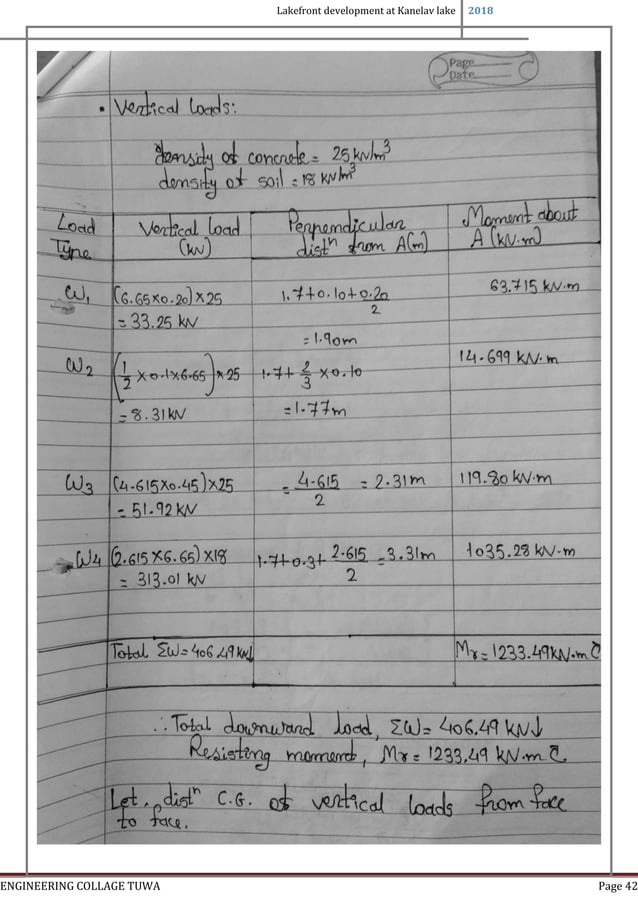 Lakefront development at Kanelav lake 2018
Page
Date
• Vertical Loads:
density of concrete = 25 kN/m³
density of soil = 18 kN/m³
Load Type | Vertical Load (kN) | Perpendicular distⁿ from A(m) | Moment about A (kN.m)
W₁ | (6.65×0.20)×25 = 33.25 kN | 1.7+0.10+0.20/2 = 1.90m | 63.715 kN.m
W₂ | (1/2 ×0.1×6.65)×25 = 8.31kN | 1.7+ 2/3 ×0.10 =1.77m | 14.699 kN.m
W₃ | (4.615×0.45)×25 = 51.92 kN | = 4.615/2 = 2.31m | 119.80 kN.m
W₄ | (2.615×6.65)×18 = 313.01 kN | 1.7+0.3+ 2.615/2 =3.31m | 1035.28 kN.m
Total ΣW=406.49kN↓ | Mr=1233.49kN.m
∴ Total downward load, ΣW= 406.49 kN↓
Resisting moment, Mr= 1233.49 kN.m
Let, distⁿ C.G. of vertical loads from face
to face.
ENGINEERING COLLAGE TUWA Page 42